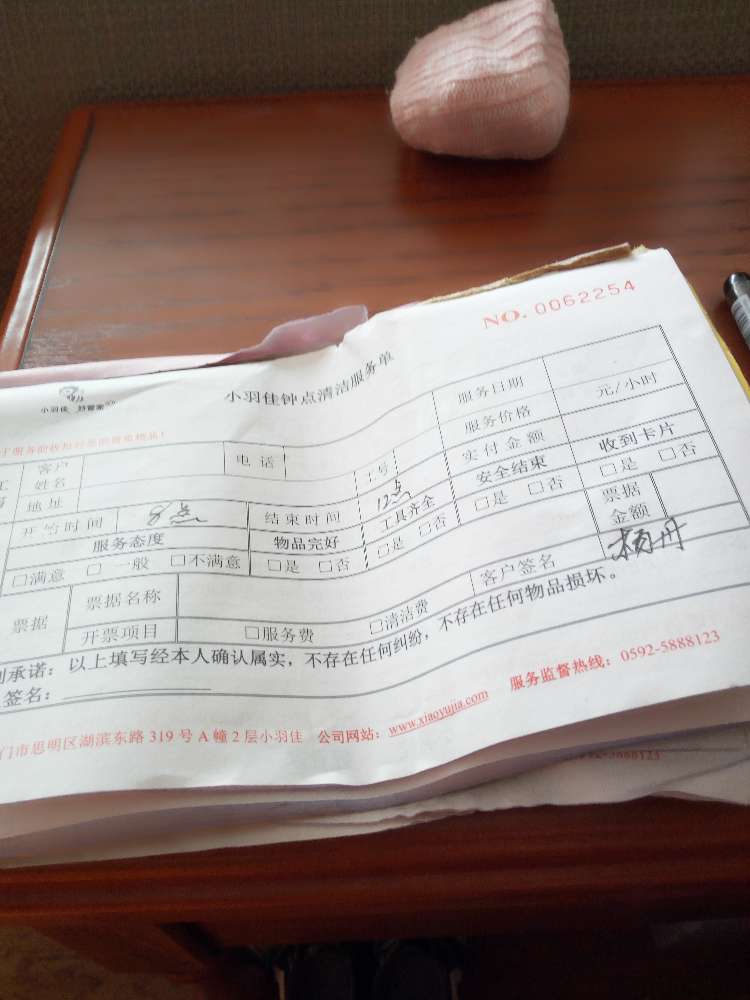 NO. 0062254
小羽佳 好管家
小羽佳钟点清洁服务单
客户姓名 电话 工号 服务日期
地址 服务价格 元/小时
开始时间 8点 结束时间 12点 实付金额
服务态度 物品完好 工具齐全 安全结束 收到卡片
□满意 □一般 □不满意 □是 □否 □是 □否 □是 □否 □是 □否
票据 票据名称 票据金额
开票项目 □服务费 □清洁费 客户签名 杨丹
承诺：以上填写经本人确认属实，不存在任何纠纷，不存在任何物品损坏。
签名：
门市思明区湖滨东路 319 号 A 幢 2 层小羽佳 公司网站：www.xiaoyujia.com 服务监督热线：0592-5888123
0592-5888123